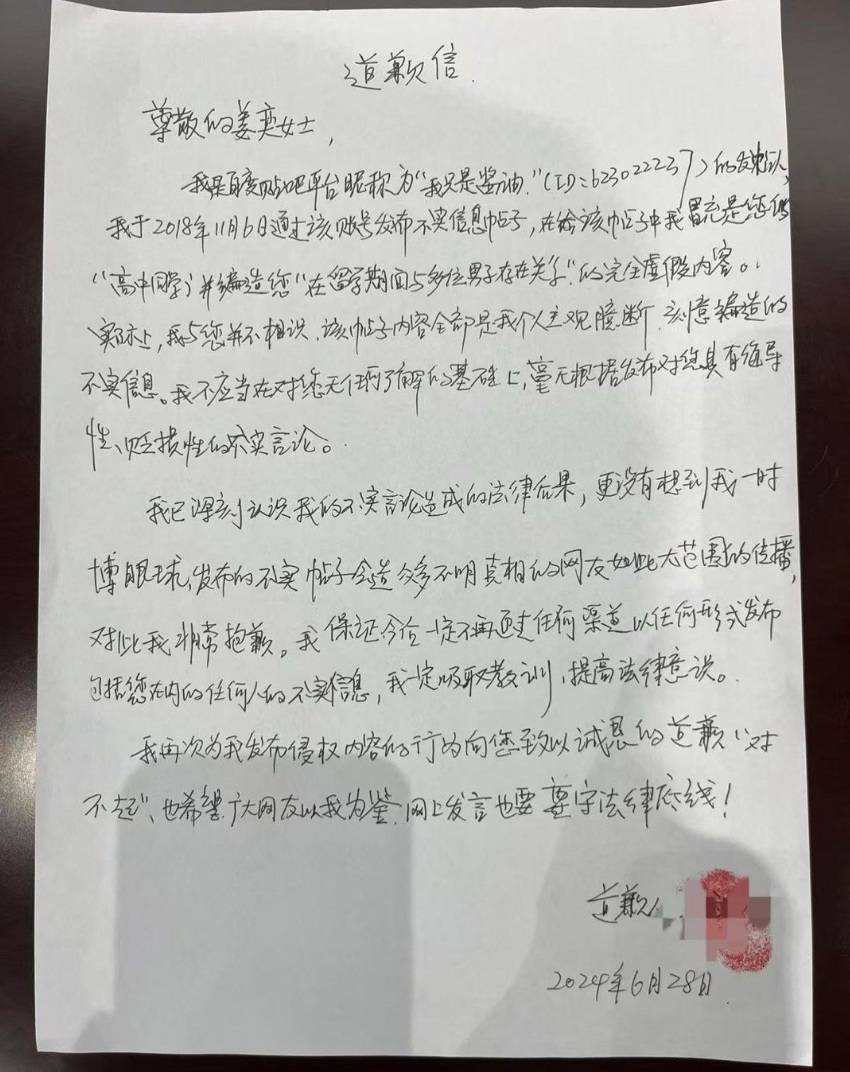 道歉信.
尊敬的姜奕女士,
我是百度贴吧平台昵称为“我只是酱油.”(ID:623022237)的发帖人,
我于2018年11月6日通过该账号发布不实信息帖子,在给该帖子中我冒充是您的
“高中同学”并编造您“在留学期间与多位男子存在关系”的完全虚假内容。
实际上,我与您并不相识.该帖子内容全部是我个人主观臆断.刻意编造的
不实信息。我不应当在对您无任何了解的基础上,毫无根据发布对您具有侮辱
性、贬损性的不实言论。
我已深刻认识我的不实言论造成的法律后果,更没有想到我一时
博眼球,发布的不实帖子会造众多不明真相的网友如此大范围的传播,
对此我非常抱歉。我保证今后一定不再通过任何渠道以任何形式发布
包括您在内的任何人的不实信息,我一定吸取教训,提高法律意识。
我再次为我发布侵权内容的行为向您致以诚恳的道歉“对
不起”、也希望广大网友以我为鉴.网上发言也要遵守法律底线!
道歉人
2024年6月28日